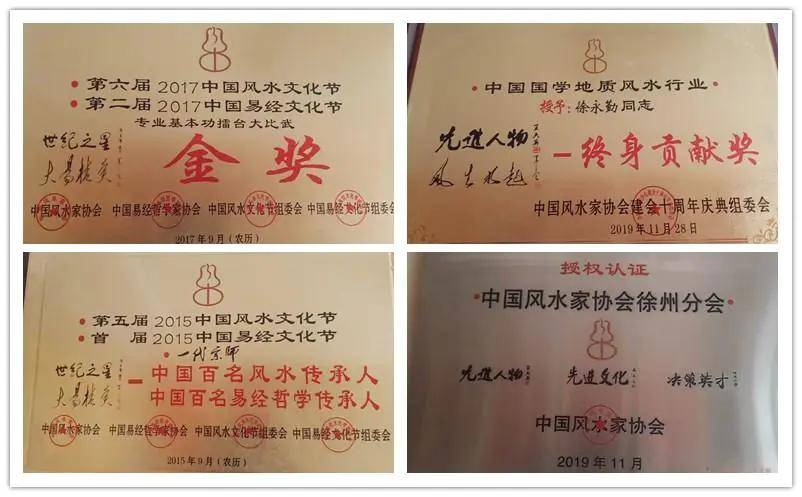 第六届2017中国风水文化节
第二届2017中国易经文化节
专业基本功擂台大比武
世纪之星
大易精英
金奖
中国风水家协会 中国易经哲学家协会 中国风水文化节组委会 中国易经文化节组委会
2017年9月（农历）
中国国学地质风水行业
授予：徐永勤同志
先进人物
风生水起
－终身贡献奖
中国风水家协会建会十周年庆典组委会
2019年11月28日
第五届2015中国风水文化节
首 届2015中国易经文化节
一代宗师
世纪之星
大易精英
－中国百名风水传承人
中国百名易经哲学传承人
中国风水家协会 中国易经哲学家协会 中国风水文化节组委会 中国易经文化节组委会
2015年9月（农历）
授权认证
·中国风水家协会徐州分会·
先进人物 先进文化 决策英才
中国风水家协会
2019年11月